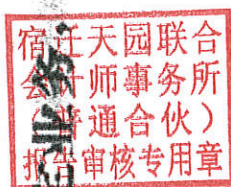 宿迁天园联合
会计师事务所
（普通合伙）
报告审核专用章
业务